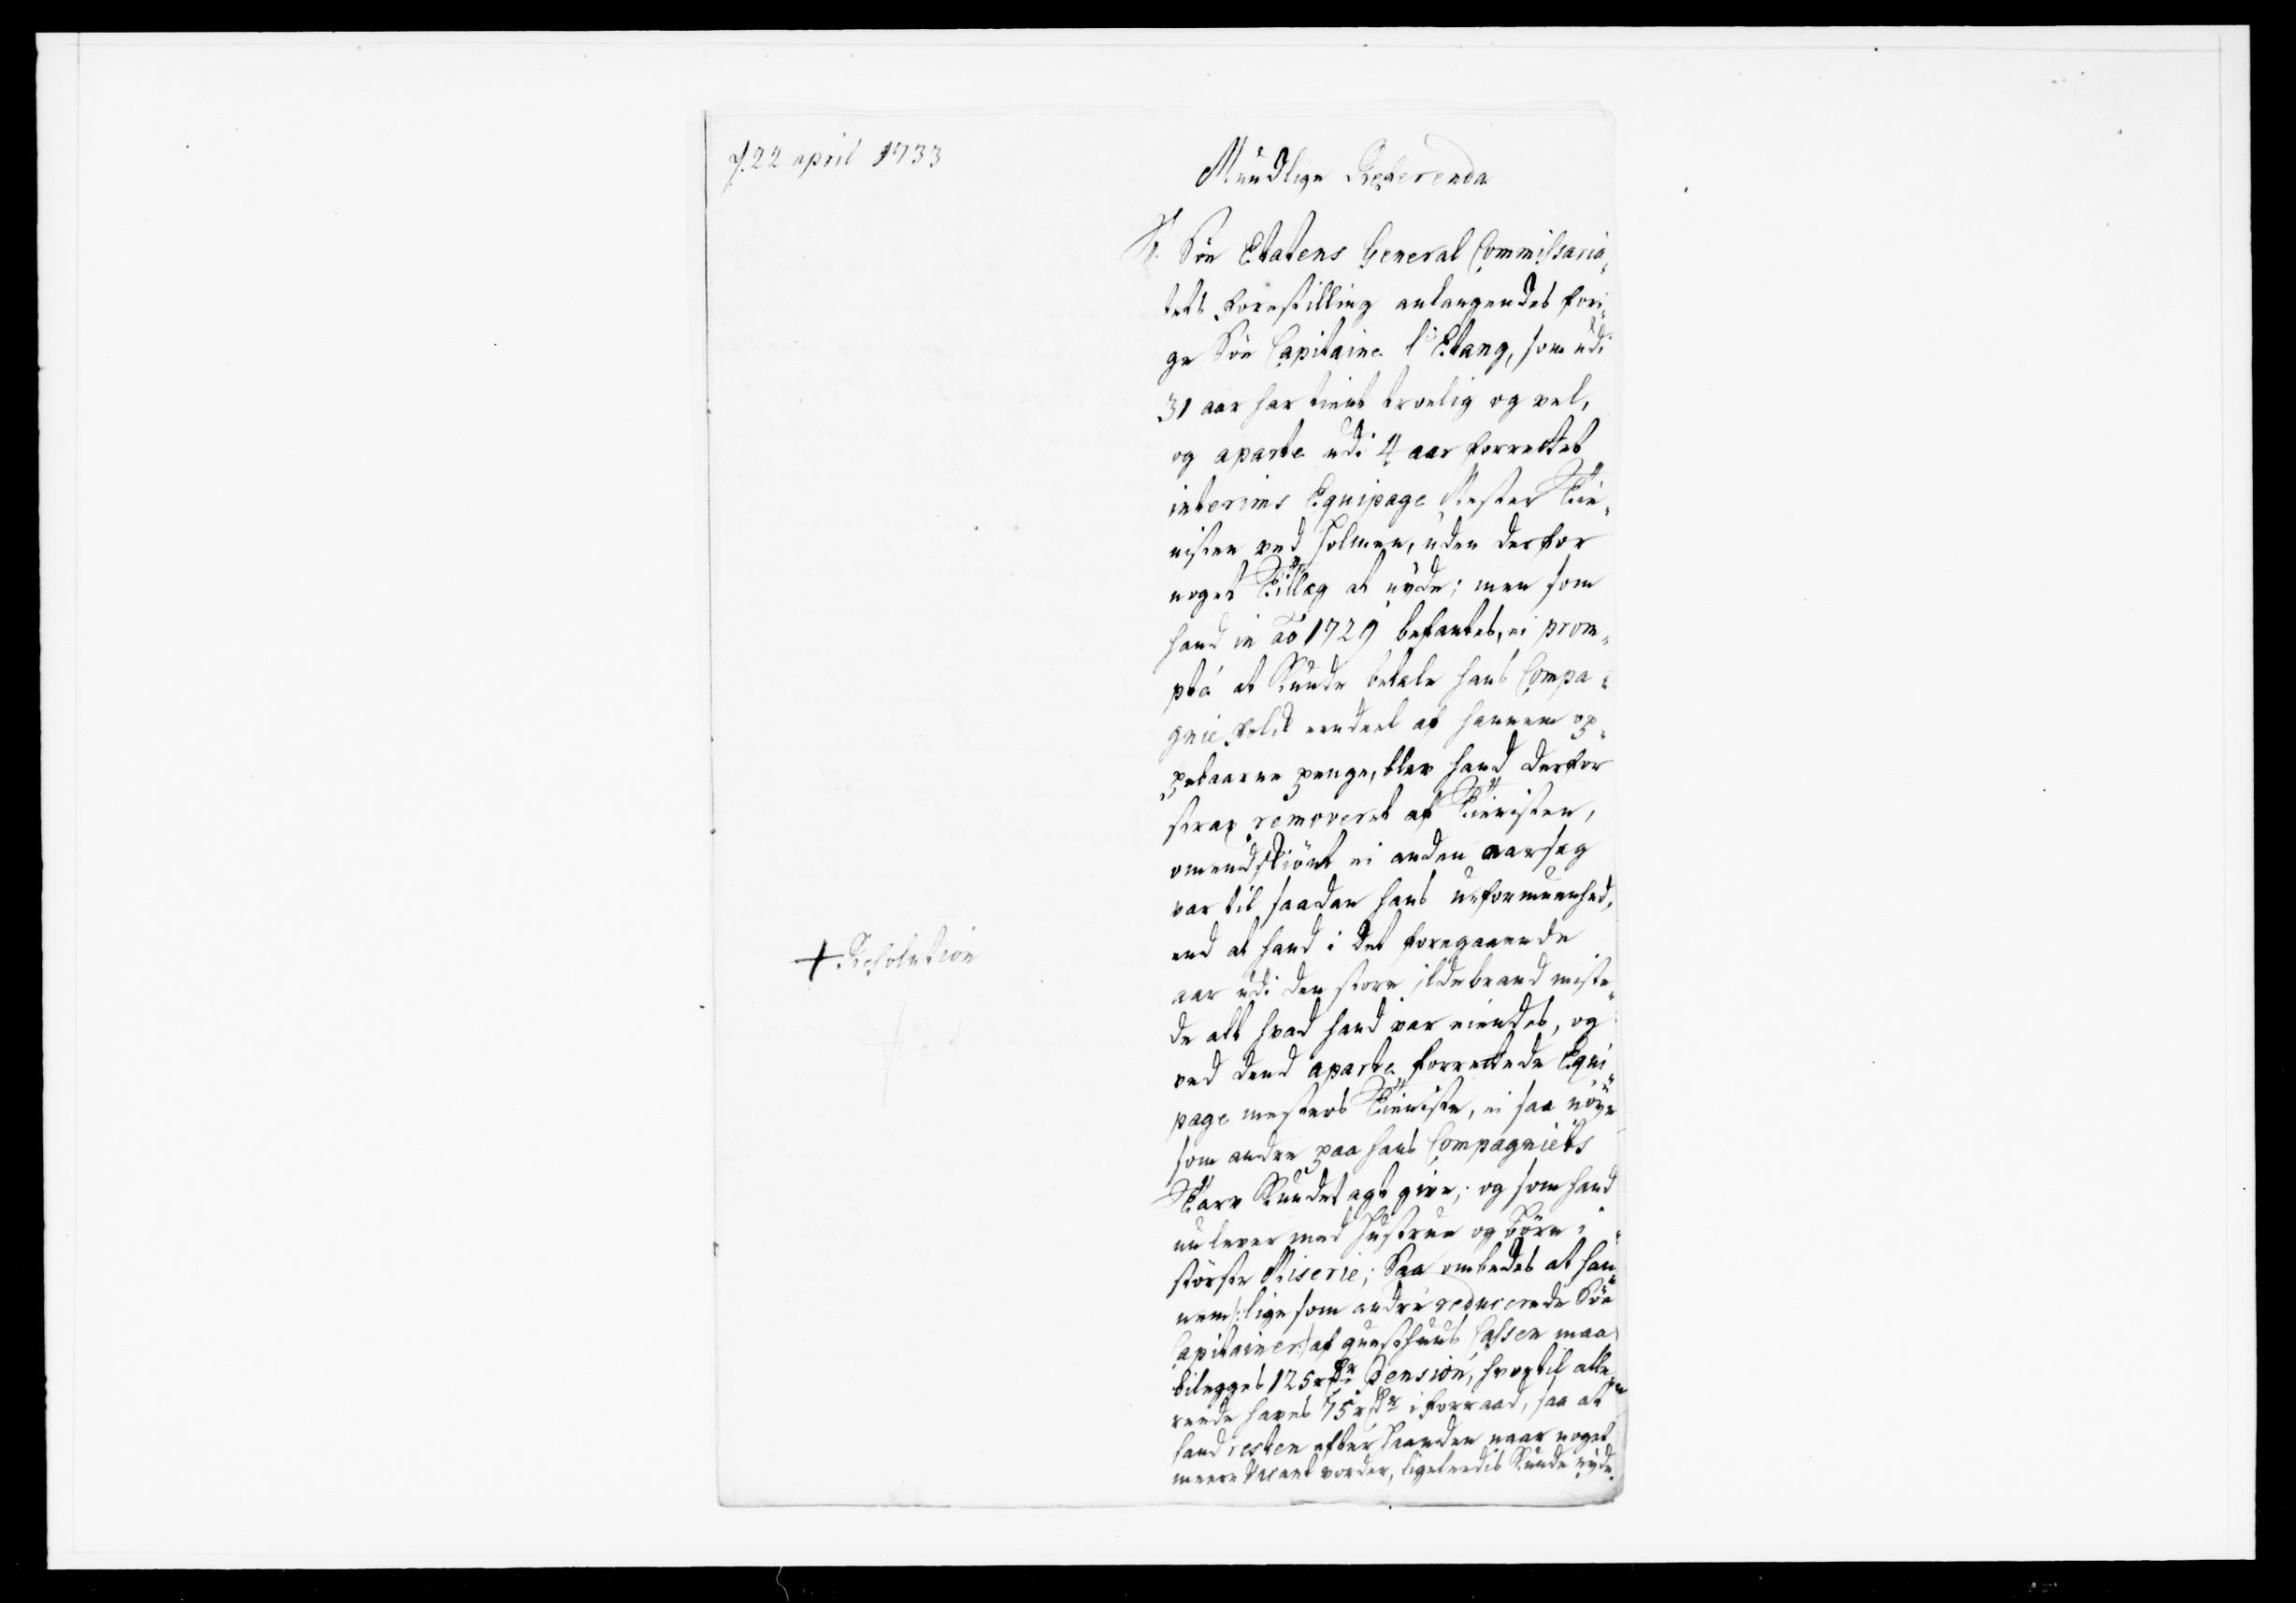 d. 22 april 1733
Mundlige Referenda
Søe Etatens General Commissaria„
tets Forestilling anlangendes fori„
ge Søe Capitaine l'Etang, som udi
31 aar har tient troelig og vel,
og aparte udi 4 aar forrettet
interims Equipage Mester Tie„
nisten ved Holmen, uden derfor
noget Tillæg at nyde; men som
hand in Ao 1729 befantes, ei prom„
pte at kunde betale hans Compa„
gnie Folck eendeel af hannem op„
pebaarne penge, blev hand derfor
strax removeret af Tienisten,
omendskiönt ei anden aarsag
var til saadan hans uformuenhed,
end at hand i det foregaaende
aar udi den store ildebrand miste„
de alt hvad hand var eiendes, og
ved dend aparte forrettede Equi„
page mesters Tieniste, ei saa nöye
som andre paa hans Compagniets
Tarv kundet agt give; og som hand
nu lever med Hustrue og Börn i
störste Miserie; Saa ombedes at han„
nem /: lige som andre reducerede Söe
Capitainer :/ af quæsthuus Cassen maa
bilegges 125 rdr Pension, hvortil alle„
reede haves 75 rdr i forraad, saa at
hand resten efter haanden naar noget
meere vacant vorder, ligeleedis kunde nyde.
+ Resolution